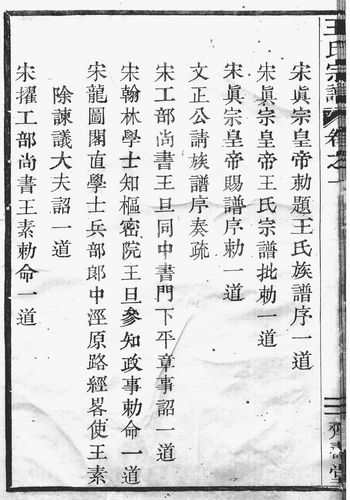 王氏宗譜
卷之一
宋眞宗皇帝勅題王氏族譜序一道
宋眞宗皇帝王氏宗譜批勅一道
宋眞宗皇帝賜譜序勅一道
文正公請族譜序奏疏
宋工部尚書王旦同中書門下平章事詔一道
宋翰林學士知樞密院王旦參知政事勅命一道
宋龍圖閣直學士兵部郎中涇原路經畧使王素
除諫議大夫詔一道
宋擢工部尚書王素勅命一道